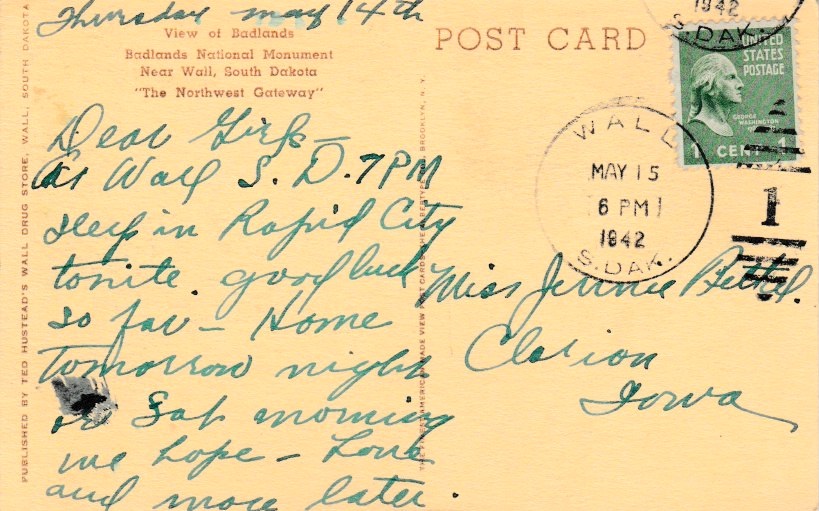 Thursday May 14th
View of Badlands
Badlands National Monument
Near Wall, South Dakota
"The Northwest Gateway"
Dear Girls—
At Wall S. D. 7 PM
sleep in Rapid City
tonite. good luck
so far — Home
tomorrow night
or Sat morning
we hope — Love
and more later.
PUBLISHED BY TED HUSTEAD'S WALL DRUG STORE, WALL, SOUTH DAKOTA
POST CARD
1942
S. DAK.
UNITED
STATES
POSTAGE
GEORGE
WASHINGTON
1 CENT 1
WALL
MAY 15
6 PM
1942
S. DAK.
1
Miss Jennie
Clarion
Iowa